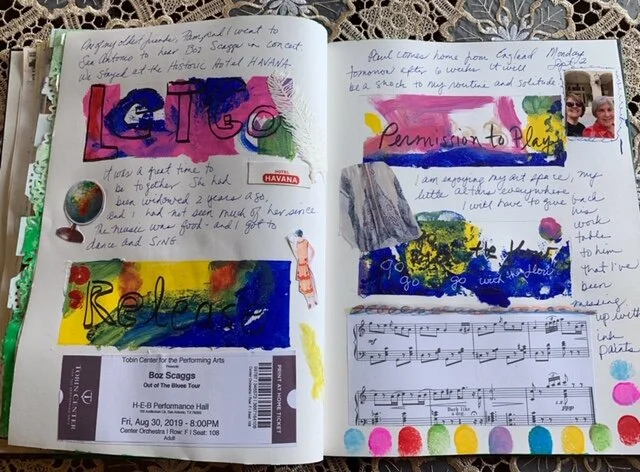 One of my oldest friends, Pam, and I went to
San Antonio to hear Boz Scaggs in Concert.
We stayed at the Historic Hotel HAVANA
LeT Go
It was a great time to
be together She had
been widowed 2 years ago
and I had not seen much of her since
The music was good - and I got to
dance and SING.
HOTEL
HAVANA
Release
TOBIN CENTER
Tobin Center for the Performing Arts
Presents
Boz Scaggs
Out of The Blues Tour
H-E-B Performance Hall
Fri, Aug 30, 2019 - 8:00PM
Center Orchestra | Row: F | Seat: 108
Adult
PRINT AT HOME TICKET
Paul comes home from England Monday
Sept 2
tomorrow after 6 weeks it will
be a shock to my routine and solitude
Permission to Play
I am enjoying my art space, my
little altars everywhere
I will have to give back
his
work
table
to him
that I've
been
messing
up with
ink
paints
go
go go with the flow